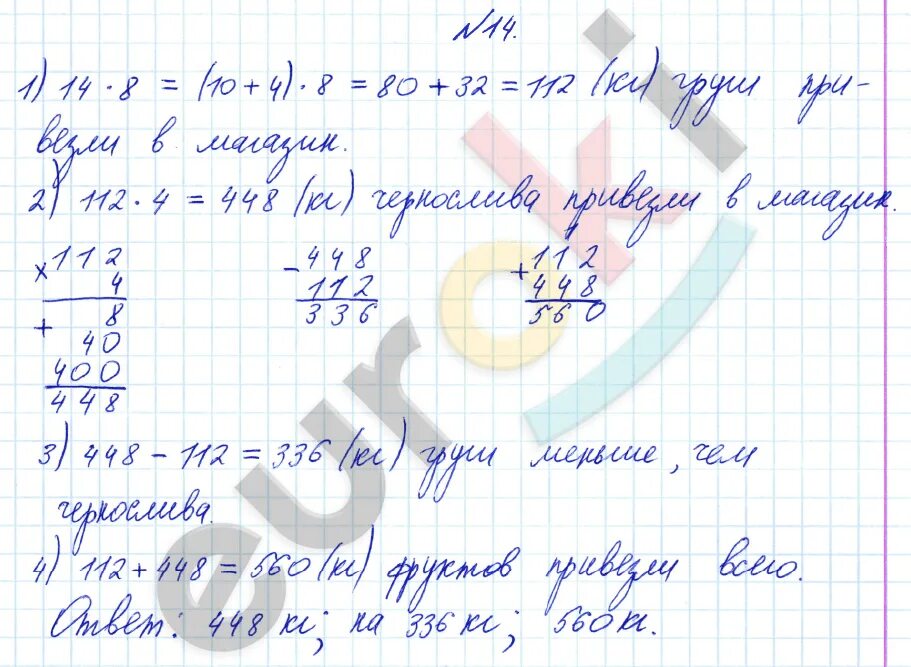 №14.
1) 14 · 8 = (10 + 4) · 8 = 80 + 32 = 112 (кг) груш при-
везли в магазин.
2) 112 · 4 = 448 (кг) чернослива привезли в магазин.
× 112 − 448 + 112
4 112 448
+ 8 336 560
40
400
448
3) 448 − 112 = 336 (кг) груш меньше, чем
чернослива.
4) 112 + 448 = 560 (кг) фруктов привезли всего.
Ответ: 448 кг; на 336 кг; 560 кг.
euroki